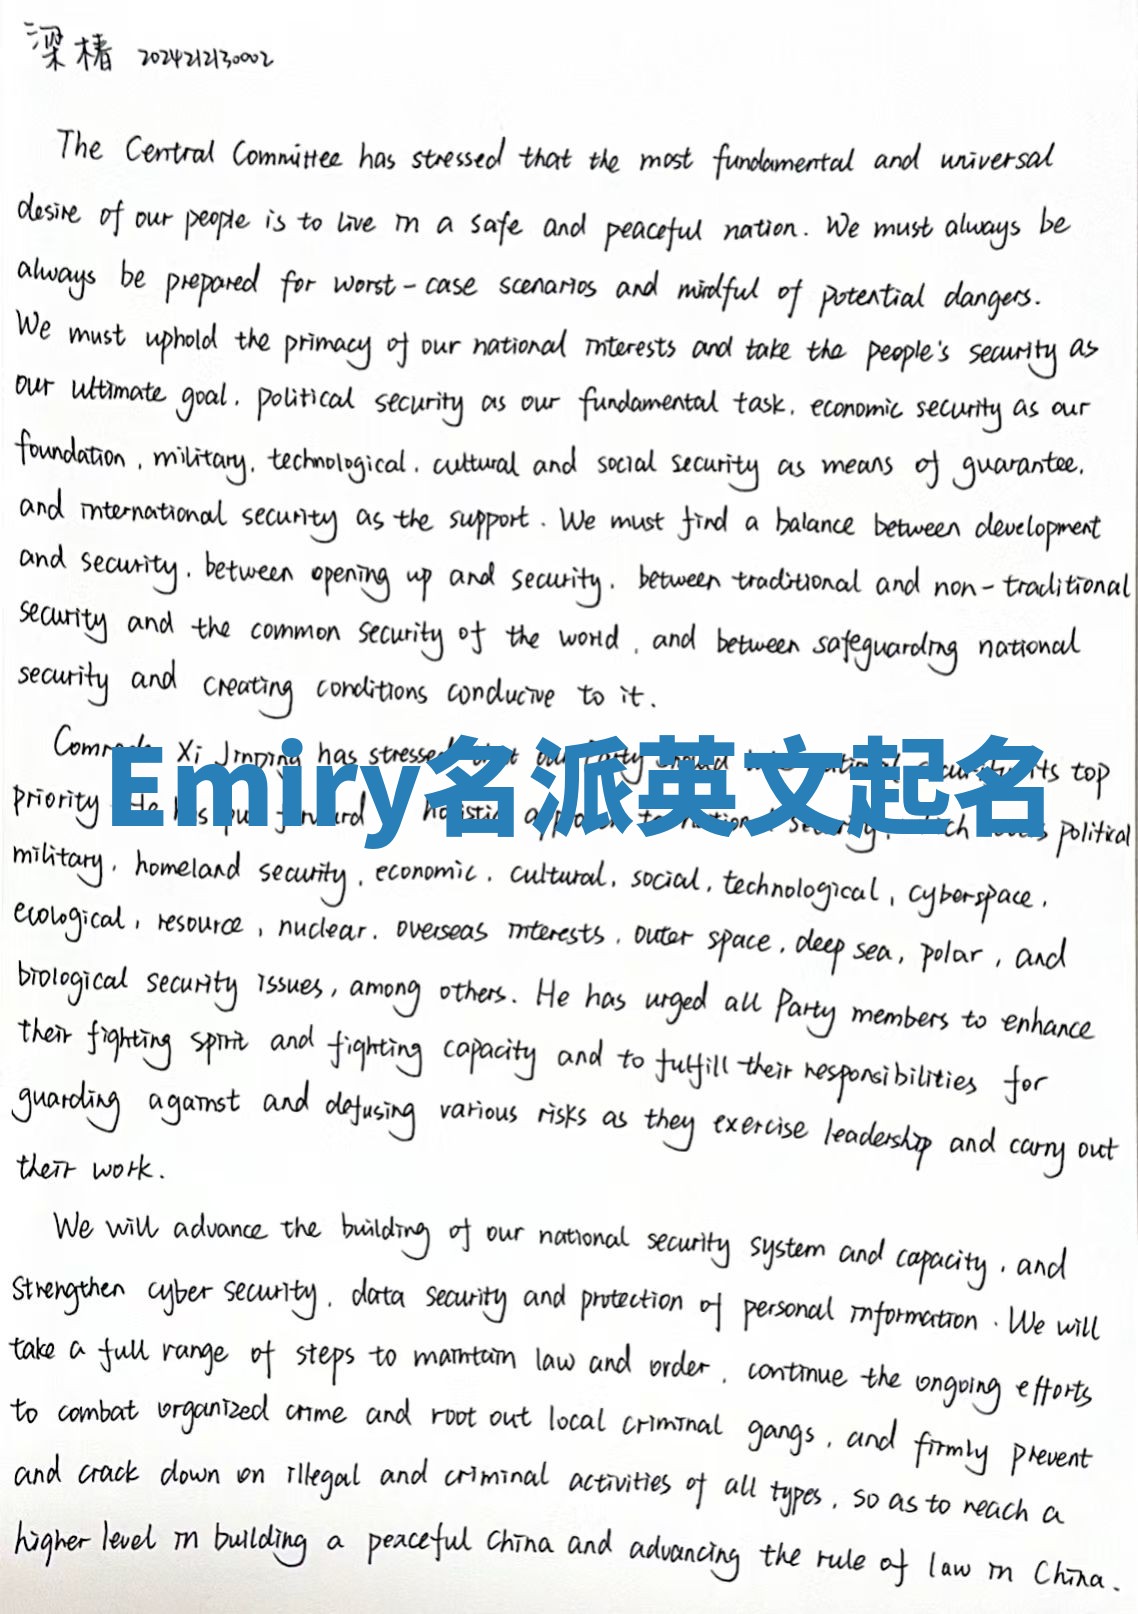 梁椿 2024212130002
The Central Committee has stressed that the most fundamental and universal
desire of our people is to live in a safe and peaceful nation. We must always be
always be prepared for worst-case scenarios and mindful of potential dangers.
We must uphold the primacy of our national interests and take the people's security as
our ultimate goal, political security as our fundamental task, economic security as our
foundation, military, technological, cultural and social security as means of guarantee,
and international security as the support. We must find a balance between development
and security, between opening up and security, between traditional and non-traditional
security and the common security of the world, and between safeguarding national
security and creating conditions conducive to it.
Comrade Xi Jinping has stressed that our Party should national security its top
priority. He has put forward holistic approach to national security, which covers political
Emiry名派英文起名
military, homeland security, economic, cultural, social, technological, cyberspace,
ecological, resource, nuclear, overseas interests, outer space, deep sea, polar, and
biological security issues, among others. He has urged all Party members to enhance
their fighting spirit and fighting capacity and to fulfill their responsibilities for
guarding against and defusing various risks as they exercise leadership and carry out
their work.
We will advance the building of our national security system and capacity, and
strengthen cyber security, data security and protection of personal information. We will
take a full range of steps to maintain law and order, continue the ongoing efforts
to combat organized crime and root out local criminal gangs, and firmly prevent
and crack down on illegal and criminal activities of all types, so as to reach a
higher level in building a peaceful China and advancing the rule of law in China.